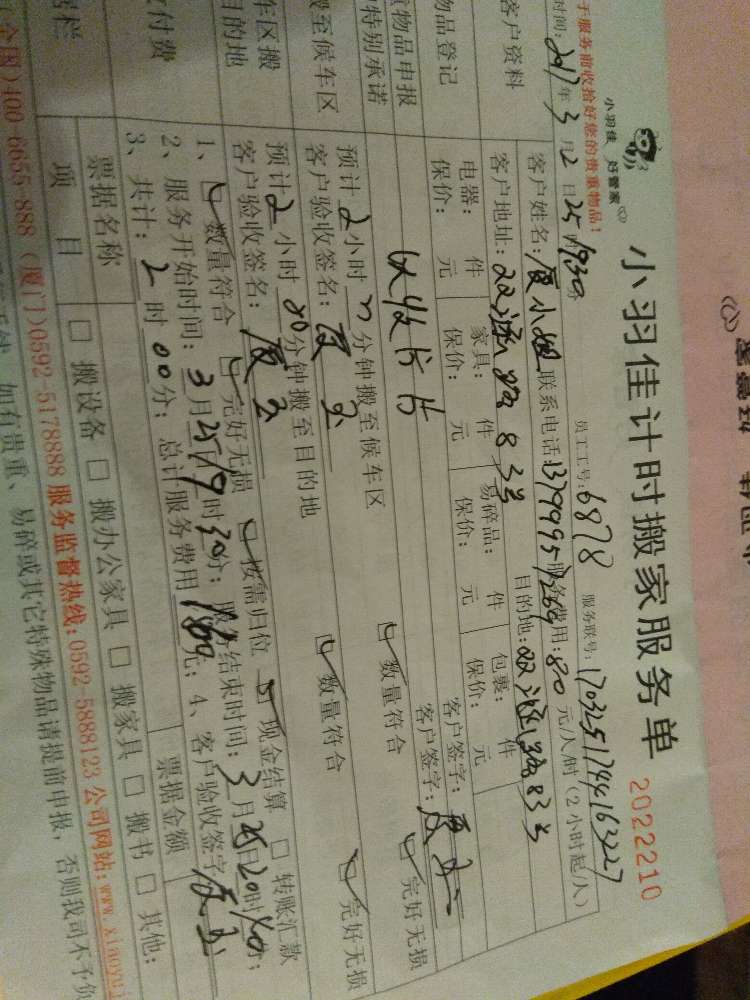 小羽佳计时搬家服务单
2022210
小羽佳 好管家
于服务前收拾好您的贵重物品!
员工工号:6878
服务联号:
时间:2017年3月25日1930
服务费用:80元/人/时(2小时起/人)
客户资料
客户姓名:夏小姐
联系电话:
客户地址:
目的地:
物品登记
电器: 件
家具: 件
易碎品: 件
包裹: 件
客户签字:
保价: 元
保价: 元
保价: 元
保价: 元
物品申报
特别承诺
客户签字:
搬至候车区
预计2小时 分钟搬至候车区
数量符合
完好无损
客户验收签名:
车区搬
目的地
预计2小时00分钟搬至目的地
数量符合
完好无损
客户验收签名:
付费
1、数量符合 完好无损 按需归位 现金结算 转账汇款
2、服务开始时间:3月25日19时30分; 服务结束时间:3月25日20时
3、共计:2时00分; 总计服务费用 元; 4、客户验收签字
票据名称
票据金额
项目
搬设备 搬办公家具 搬家具 搬书 其他:
全国)400-6655-888 (厦门)0592-5178888 服务监督热线:0592-5888123 公司网站:www.xiaoyuj
如有贵重、易碎或其它特殊物品请提前申报,否则我司不予负